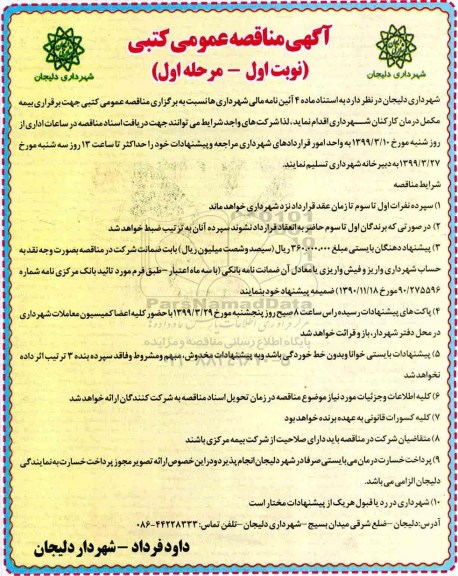 آگهی مناقصه عمومی کتبی
(نوبت اول - مرحله اول)
شهرداری دلیجان
شهرداری دلیجان
شهرداری دلیجان در نظر دارد به استناد ماده ۴ آئین نامه مالی شهرداری ها نسبت به برگزاری مناقصه عمومی کتبی جهت برقراری بیمه
مکمل درمان کارکنان شهرداری اقدام نماید، لذا شرکت های واجد شرایط می توانند جهت دریافت اسناد مناقصه در ساعات اداری از
روز شنبه مورخ ۱۳۹۹/۳/۱۰ به واحد امور قراردادهای شهرداری مراجعه و پیشنهادات خود را حداکثر تا ساعت ۱۳ روز سه شنبه مورخ
۱۳۹۹/۳/۲۷ به دبیرخانه شهرداری تسلیم نمایند.
شرایط مناقصه
۱) سپرده نفرات اول تا سوم تا زمان عقد قرارداد نزد شهرداری خواهد ماند
۲) در صورتی که برندگان اول تا سوم حاضر به انعقاد قرارداد نشوند سپرده آنان به ترتیب ضبط خواهد شد
۳) پیشنهاد دهندگان بایستی مبلغ ۳۶۰.۰۰۰.۰۰۰ ریال (سیصد و شصت میلیون ریال) بابت ضمانت شرکت در مناقصه بصورت وجه نقد به
حساب شهرداری واریز و فیش واریزی یا معادل آن ضمانت نامه بانکی (با سه ماه اعتبار - طبق فرم مورد تائید بانک مرکزی نامه شماره
۹۰/۲۷۵۵۹۶ مورخ ۱۳۹۰/۱۱/۱۸) ضمیمه پیشنهاد خود بنمایند
۴) پاکت های پیشنهادات رسیده راس ساعت ۸ صبح روز پنجشنبه مورخ ۱۳۹۹/۳/۲۹ با حضور کلیه اعضا کمیسیون معاملات شهرداری
در محل دفتر شهردار، باز و قرائت خواهد شد
۵) پیشنهادات بایستی خوانا و بدون خط خوردگی باشد و به پیشنهادات مخدوش، مبهم و مشروط و فاقد سپرده بنده ۳ ترتیب اثر داده
نخواهد شد
۶) کلیه اطلاعات و جزئیات مورد نیاز موضوع مناقصه در زمان تحویل اسناد مناقصه به شرکت کنندگان ارائه خواهد شد
۷) کلیه کسورات قانونی به عهده برنده خواهد بود
۸) متقاضیان شرکت در مناقصه باید دارای صلاحیت از شرکت بیمه مرکزی باشند
۹) پرداخت خسارت درمان می بایستی صرفا در شهر دلیجان انجام پذیرد و در این خصوص ارائه تصویر مجوز پرداخت خسارت به نمایندگی
دلیجان الزامی می باشد.
۱۰) شهرداری در رد یا قبول هر یک از پیشنهادات مختار است
آدرس: دلیجان - ضلع شرقی میدان بسیج - شهرداری دلیجان - تلفن تماس: ۴۴۲۲۸۳۳۳-۰۸۶
داود فرداد - شهردار دلیجان
ParsNamadData